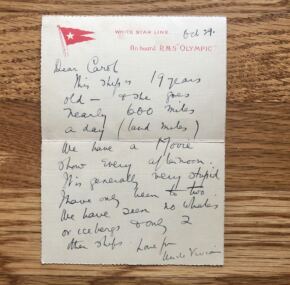 WHITE STAR LINE
Oct 29.
On board R.M.S "OLYMPIC"
Dear Carol
This ship is 19 years
old – & she goes
nearly 600 miles
a day (land miles)
We have a Movie
show every afternoon.
It is generally very stupid
I have only been to two.
We have seen no whales
or icebergs & only 2
other ships. Love from
Uncle Vivian